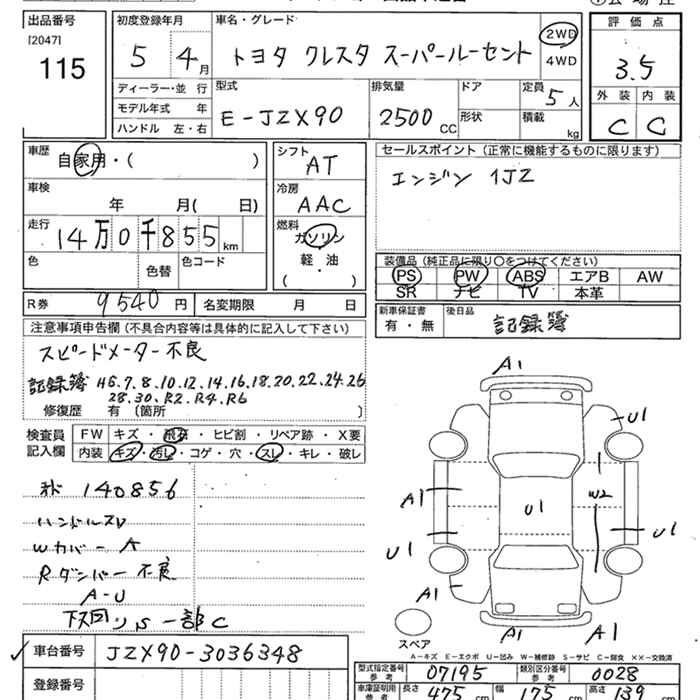 出品番号 初度登録年月 車名・グレード 評価点
[2047] 5 4月 トヨタ クレスタ スーパールーセント 2WD 4WD
115 3.5
ディーラー・並 行 型式 排気量 ドア 定員 5人 外装 内装
モデル年式 年 E-JZX90 2500CC 形状 積載 kg C C
ハンドル 左・右
車歴 シフト セールスポイント（正常に機能するものに限ります）
自家用・( ) AT エンジン 1JZ
車検 冷房
年 月( 日) AAC
走行 燃料
14万0千855km ガソリン
色 色替 色コード 軽・油 装備品（純正品に限り○をつけてください）
( ・ ) PS PW ABS エアB AW
SR ナビ TV 本革
R券 9540円 名変期限 月 日 新車保証書 後日品
有・無 記録簿
注意事項申告欄（不具合内容等は具体的に記入して下さい）
スピードメーター不良
記録簿 H6.7.8.10.12.14.16.18.20.22.24.26
28.30.R2.R4.R6
修復歴 有（箇所 ）
検査員 FW キズ・飛石・ヒビ割・リペア跡・X要
記入欄 内装 キズ・汚れ・コゲ・穴・スレ・キレ・破レ
140856
ハンドルスレ
Wカバー A
Rダンパー不良
A-U
下回りS 一部C
A1
U1
A1 U1 W2
U1 U1
A1
A1 A1
スペア
A-キズ E-エクボ U-凹み W-補修跡 S-サビ C-腐食 XX-交換済
車台番号 JZX90-3036348
登録番号
型式指定番号 参考 07195 類別区分番号 参考 0028
車庫証明用 参考 長さ 475cm 幅 175cm 高さ 139cm